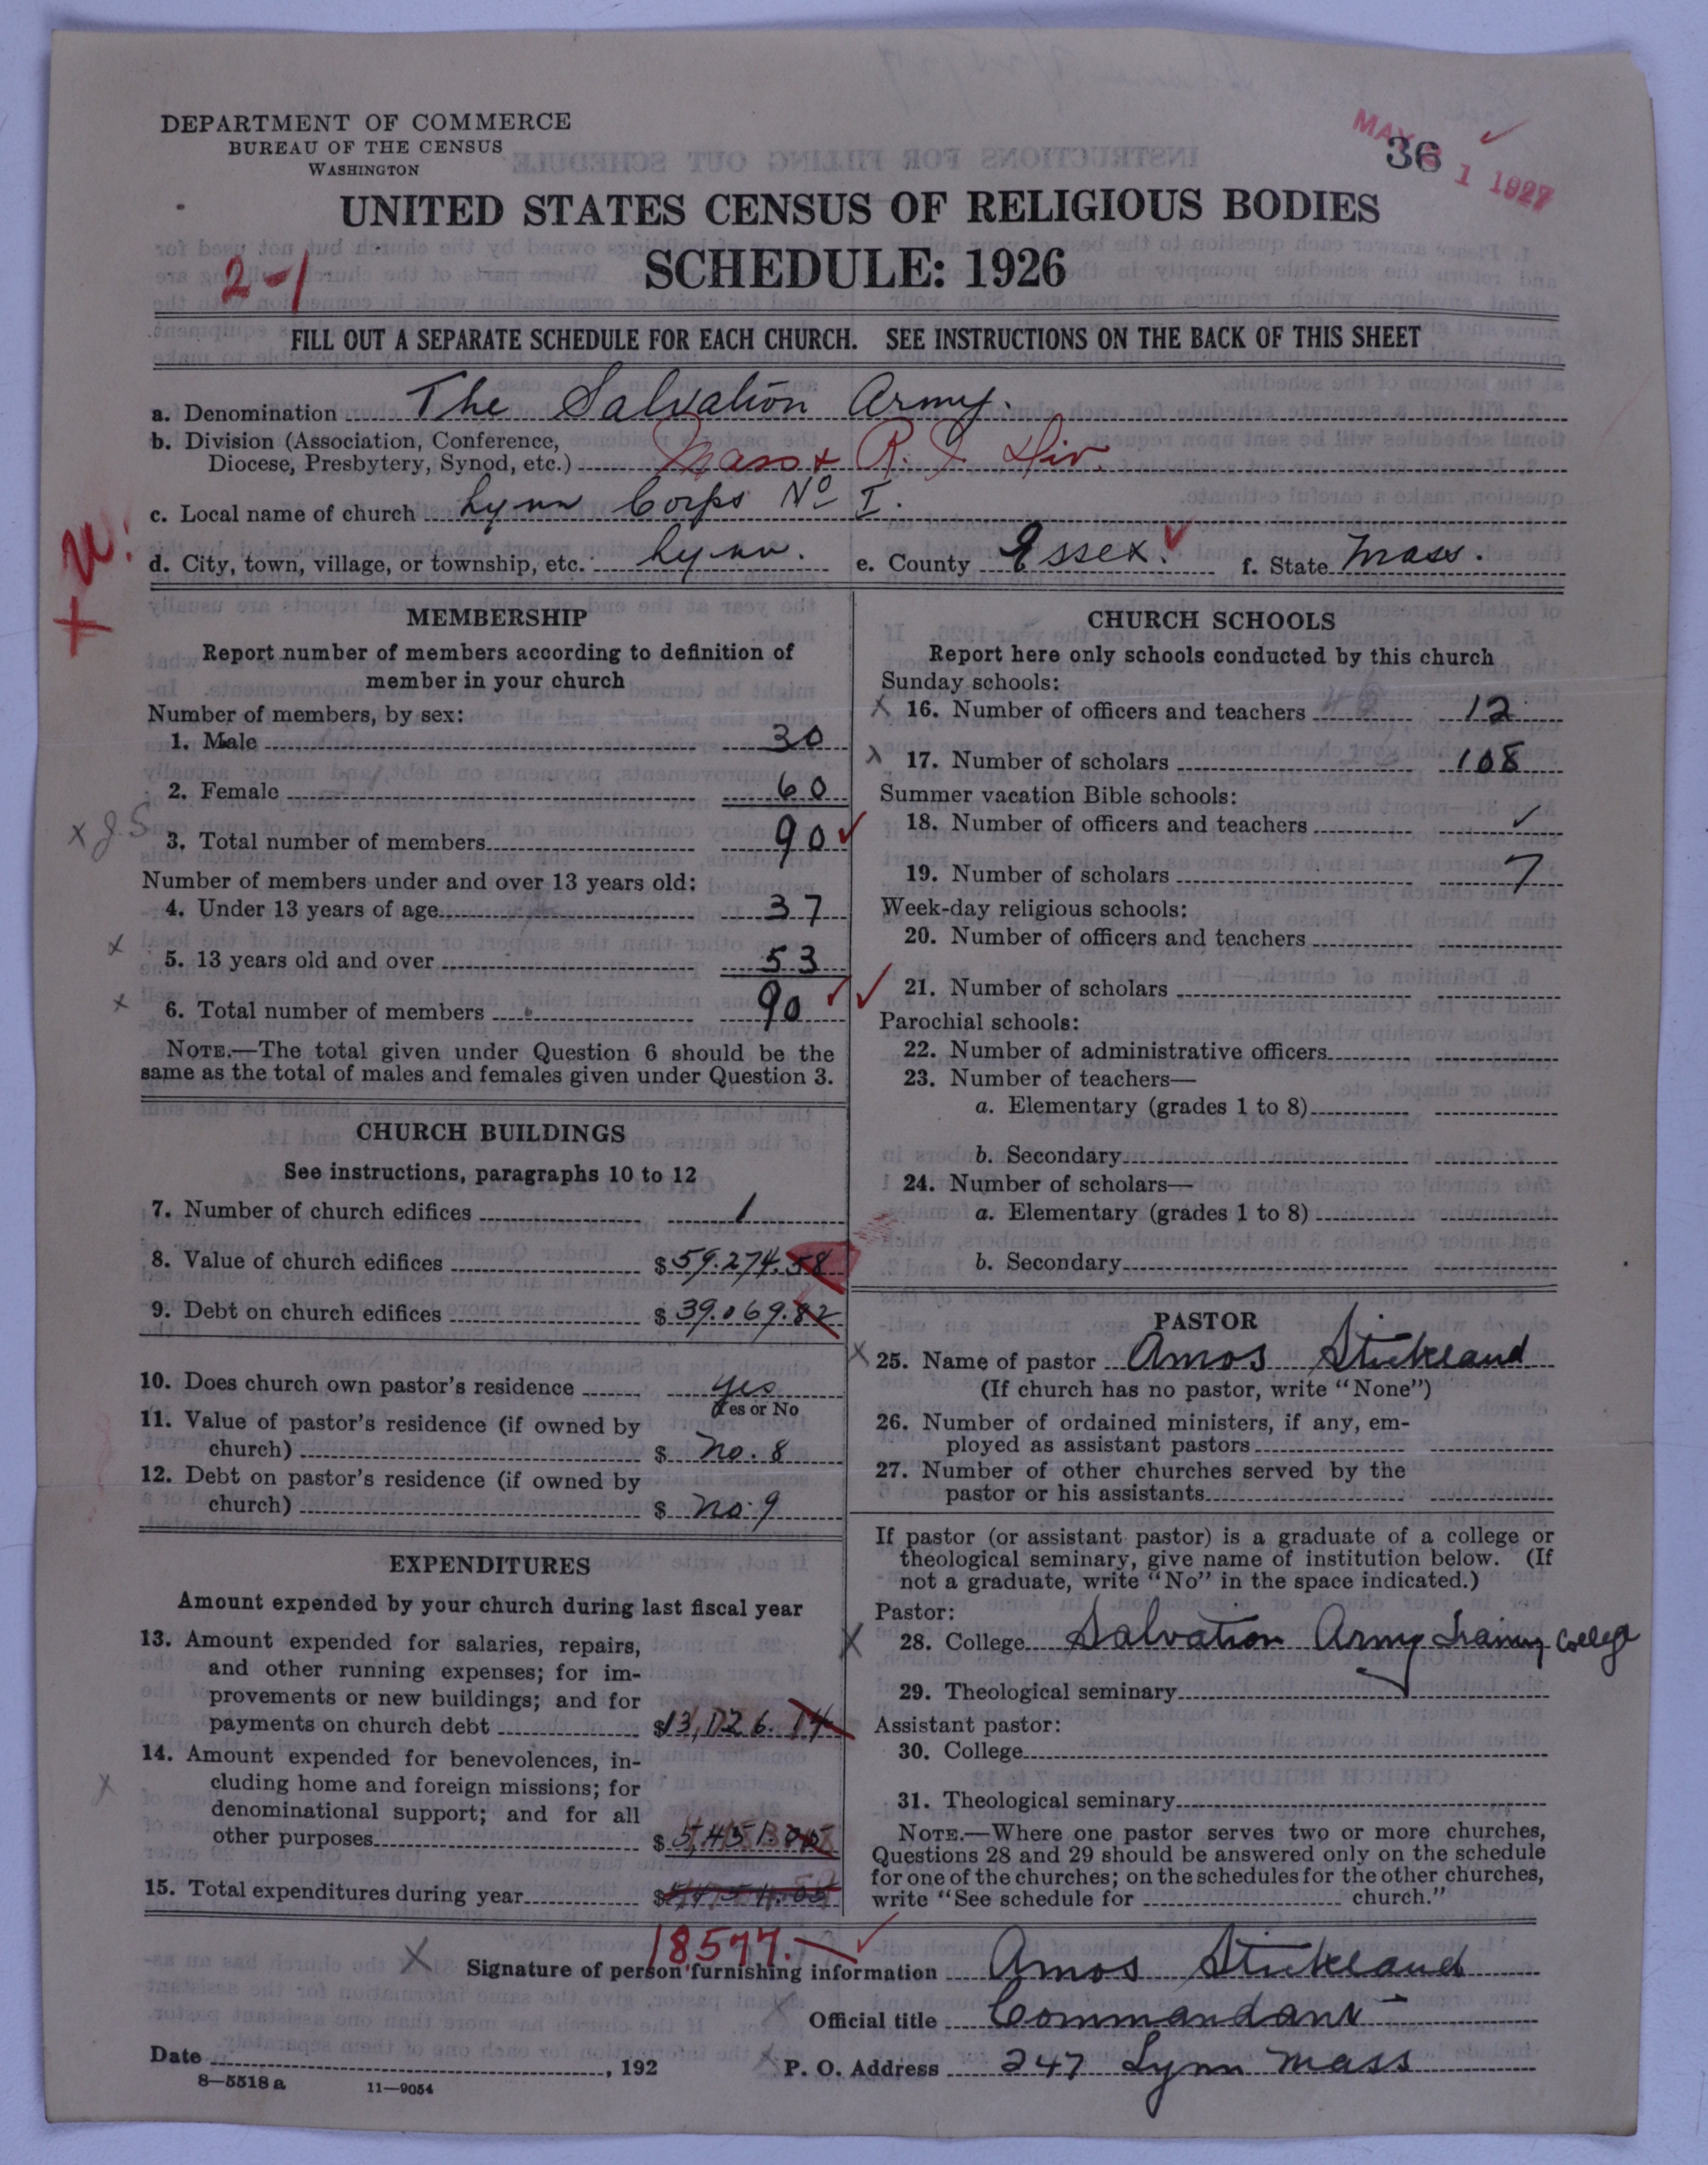 DEPARTMENT OF COMMERCE
BUREAU OF THE CENSUS
WASHINGTON
36
MAY 1 1927
UNITED STATES CENSUS OF RELIGIOUS BODIES
SCHEDULE: 1926
2-1
FILL OUT A SEPARATE SCHEDULE FOR EACH CHURCH. SEE INSTRUCTIONS ON THE BACK OF THIS SHEET
a. Denomination The Salvation Army.
b. Division (Association, Conference,
Diocese, Presbytery, Synod, etc.) Mass + R. I. Div.
c. Local name of church Lynn Corps No I.
d. City, town, village, or township, etc. Lynn. e. County Essex. f. State Mass.
MEMBERSHIP
Report number of members according to definition of
member in your church
Number of members, by sex:
1. Male 30
2. Female 60
x J.S
3. Total number of members 90
Number of members under and over 13 years old:
4. Under 13 years of age 37
x 5. 13 years old and over 53
x 6. Total number of members 90
NOTE.—The total given under Question 6 should be the
same as the total of males and females given under Question 3.
CHURCH BUILDINGS
See instructions, paragraphs 10 to 12
7. Number of church edifices 1
8. Value of church edifices $59.274.58
9. Debt on church edifices $39.069.82
10. Does church own pastor's residence yes
Yes or No
11. Value of pastor's residence (if owned by
church) $ no. 8
12. Debt on pastor's residence (if owned by
church) $ no. 9
EXPENDITURES
Amount expended by your church during last fiscal year
13. Amount expended for salaries, repairs,
and other running expenses; for im-
provements or new buildings; and for
payments on church debt $13,126.14
x 14. Amount expended for benevolences, in-
cluding home and foreign missions; for
denominational support; and for all
other purposes $5,451.
15. Total expenditures during year $
18577.
CHURCH SCHOOLS
Report here only schools conducted by this church
Sunday schools:
x 16. Number of officers and teachers 12
x 17. Number of scholars 108
Summer vacation Bible schools:
18. Number of officers and teachers
19. Number of scholars
Week-day religious schools:
20. Number of officers and teachers
21. Number of scholars
Parochial schools:
22. Number of administrative officers
23. Number of teachers—
a. Elementary (grades 1 to 8)
b. Secondary
24. Number of scholars—
a. Elementary (grades 1 to 8)
b. Secondary
PASTOR
x 25. Name of pastor Amos Strickland
(If church has no pastor, write "None")
26. Number of ordained ministers, if any, em-
ployed as assistant pastors
27. Number of other churches served by the
pastor or his assistants
If pastor (or assistant pastor) is a graduate of a college or
theological seminary, give name of institution below. (If
not a graduate, write "No" in the space indicated.)
Pastor:
x 28. College Salvation Army Training College
29. Theological seminary
Assistant pastor:
30. College
31. Theological seminary
NOTE.—Where one pastor serves two or more churches,
Questions 28 and 29 should be answered only on the schedule
for one of the churches; on the schedules for the other churches,
write "See schedule for church."
x Signature of person furnishing information Amos Strickland
x Official title Commandant
Date , 192 x P. O. Address 247 Lynn Mass
8—5518a 11—9054